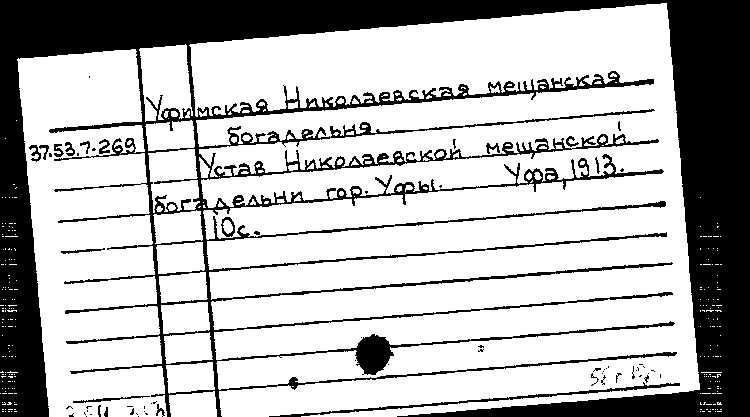 Уфимская Николаевская мещанская
37.53.7.269 богадельня.
Устав Николаевской мещанской
богадельни гор. Уфы. Уфа, 1913.
10с.